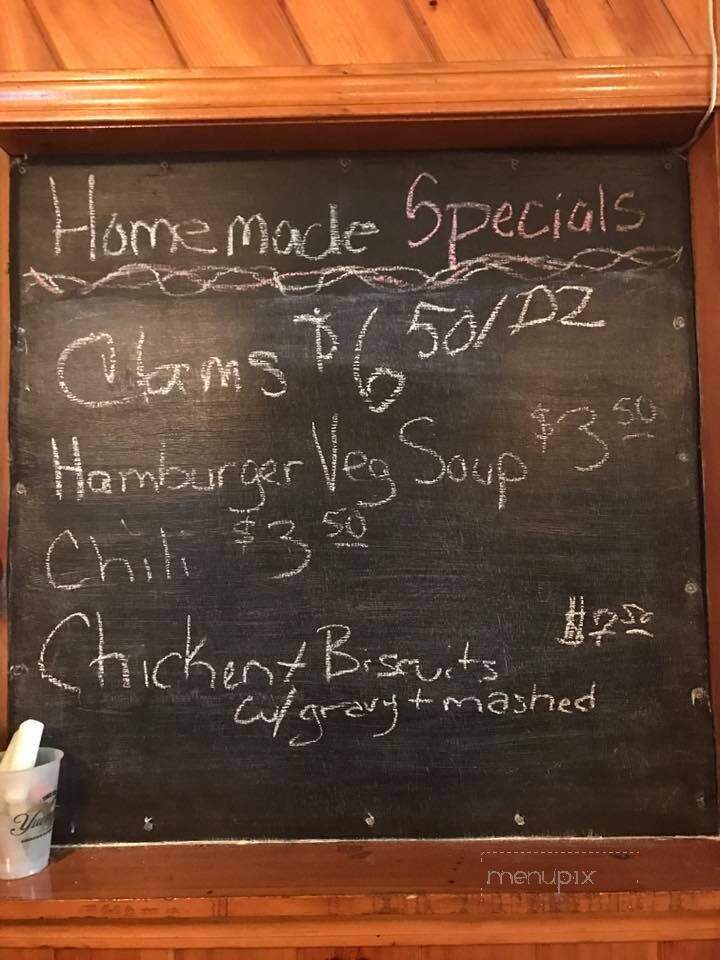 Homemade Specials
Clams $6 50/DZ
Hamburger Veg Soup $3 50
Chili $3 50
Chicken + Biscuits $7 50
w/gravy + mashed
menupix